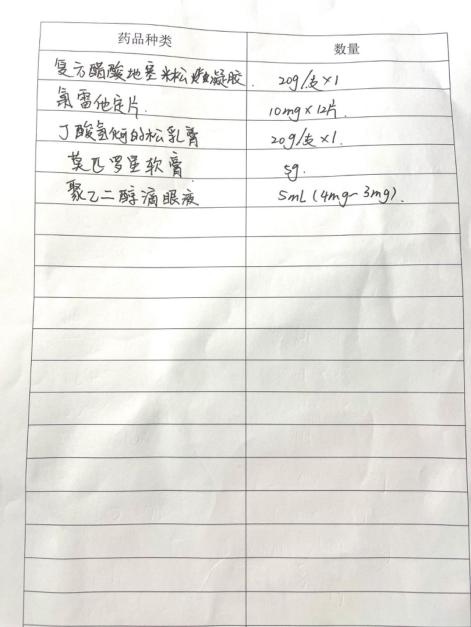 药品种类 数量
复方醋酸地塞米松凝胶. 20g/支×1
氯雷他定片. 10mg×12片.
丁酸氢化可的松乳膏 20g/支×1.
莫匹罗星软膏 5g.
聚乙二醇滴眼液 5mL(4mg~3mg).